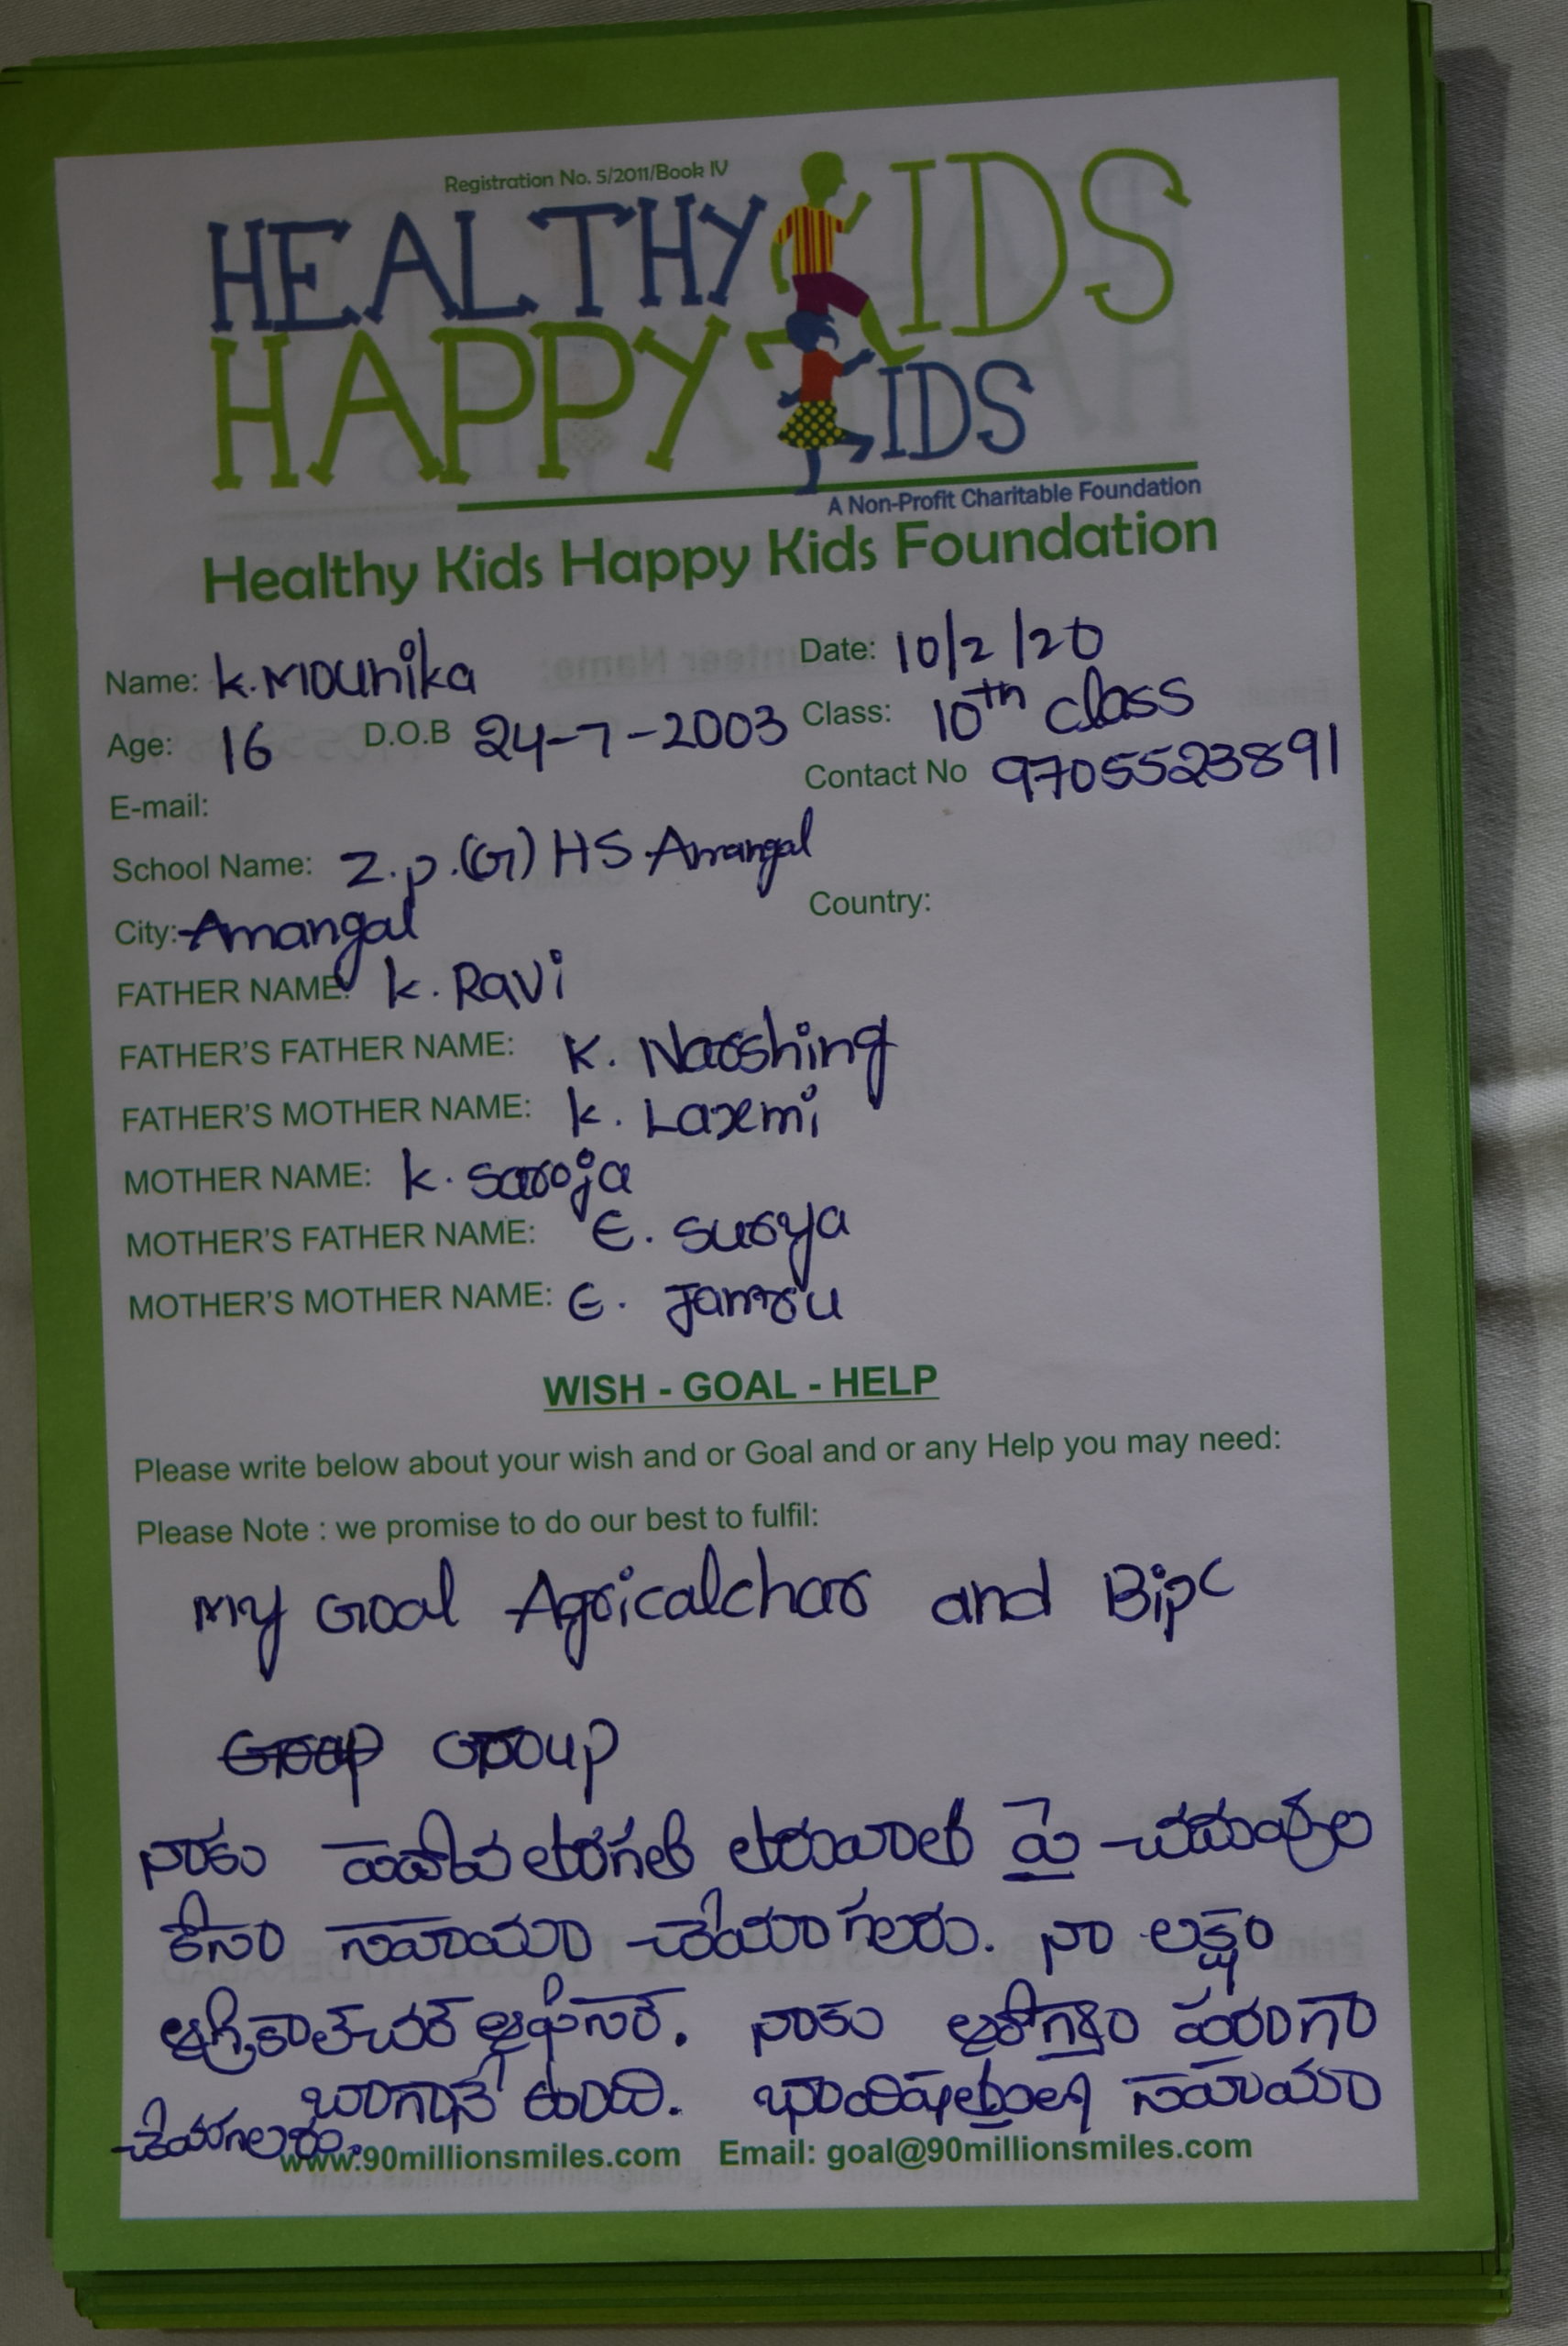 Registration No. 5/2011/Book IV
HEALTHY KIDS
HAPPY KIDS
A Non-Profit Charitable Foundation
Healthy Kids Happy Kids Foundation
Name: K. Mounika Date: 10/2/20
Age: 16 D.O.B 24-7-2003 Class: 10th class
E-mail: Contact No 9705523891
School Name: Z.p.(G) HS Amangal
City: Amangal Country:
FATHER NAME: K. Ravi
FATHER'S FATHER NAME: K. Narshing
FATHER'S MOTHER NAME: K. Laxmi
MOTHER NAME: K. Saroja
MOTHER'S FATHER NAME: E. Surya
MOTHER'S MOTHER NAME: E. Jamru
WISH - GOAL - HELP
Please write below about your wish and or Goal and or any Help you may need:
Please Note : we promise to do our best to fulfil:
My Goal Agricalchar and Bipc
Group
నాకు పదోవ తరగతి తరువాత పై చదువుల
కోసం సహయం చేయగలరు. నా లక్ష్యం
అగ్రికాల్చర్ ఆఫీసర్. నాకు ఆరోగ్యం పరంగా
బాగానే ఉంది. సహయం
చేయగలరు.
www.90millionsmiles.com Email: goal@90millionsmiles.com